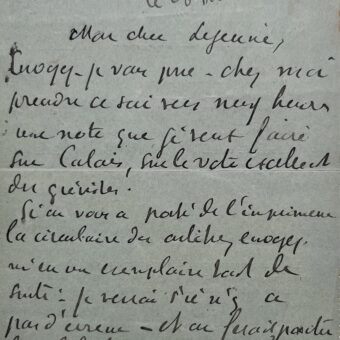 le
Mon cher Lejeune,
Envoyez-je vous prie - chez moi
prendre ce soir vers neuf heures
une note que je veux faire
sur Calais, sur le vote
des grévistes.
Si on vous a porté de l'imprimerie
la circulaire des artistes envoyez-
m'en un exemplaire tout de
suite : je verrai s'il n'y a
pas d'erreur - et on